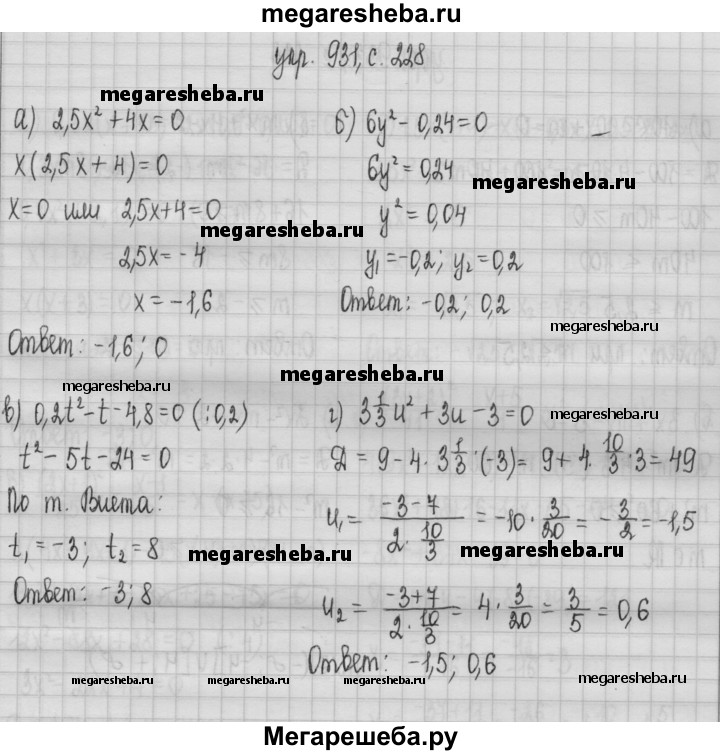 megaresheba.ru
упр. 931, с. 228
megaresheba.ru
а) 2,5x² + 4x = 0
x(2,5x + 4) = 0
x = 0 или 2,5x + 4 = 0
megaresheba.ru
2,5x = -4
x = -1,6
Ответ: -1,6; 0
megaresheba.ru
б) 6y² - 0,24 = 0
6y² = 0,24
megaresheba.ru
y² = 0,04
y₁ = -0,2; y₂ = 0,2
Ответ: -0,2; 0,2
megaresheba.ru
megaresheba.ru
в) 0,2t² - t - 4,8 = 0 (:0,2)
t² - 5t - 24 = 0
По т. Виета:
t₁ = -3; t₂ = 8
megaresheba.ru
Ответ: -3; 8
г) 3 1/3 u² + 3u - 3 = 0
megaresheba.ru
Д = 9 - 4 · 3 1/3 · (-3) = 9 + 4 · 10/3 · 3 = 49
u₁ = (-3 - 7)/(2 · 10/3) = -10 · 3/20 = -3/2 = -1,5
megaresheba.ru
u₂ = (-3 + 7)/(2 · 10/3) = 4 · 3/20 = 3/5 = 0,6
Ответ: -1,5; 0,6
megaresheba.ru megaresheba.ru megaresheba.ru megaresheba.ru
Мегарешеба.ру